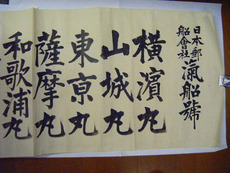 日本郵
船會社
汽船號
横濱丸
山城丸
東京丸
薩摩丸
和歌浦丸